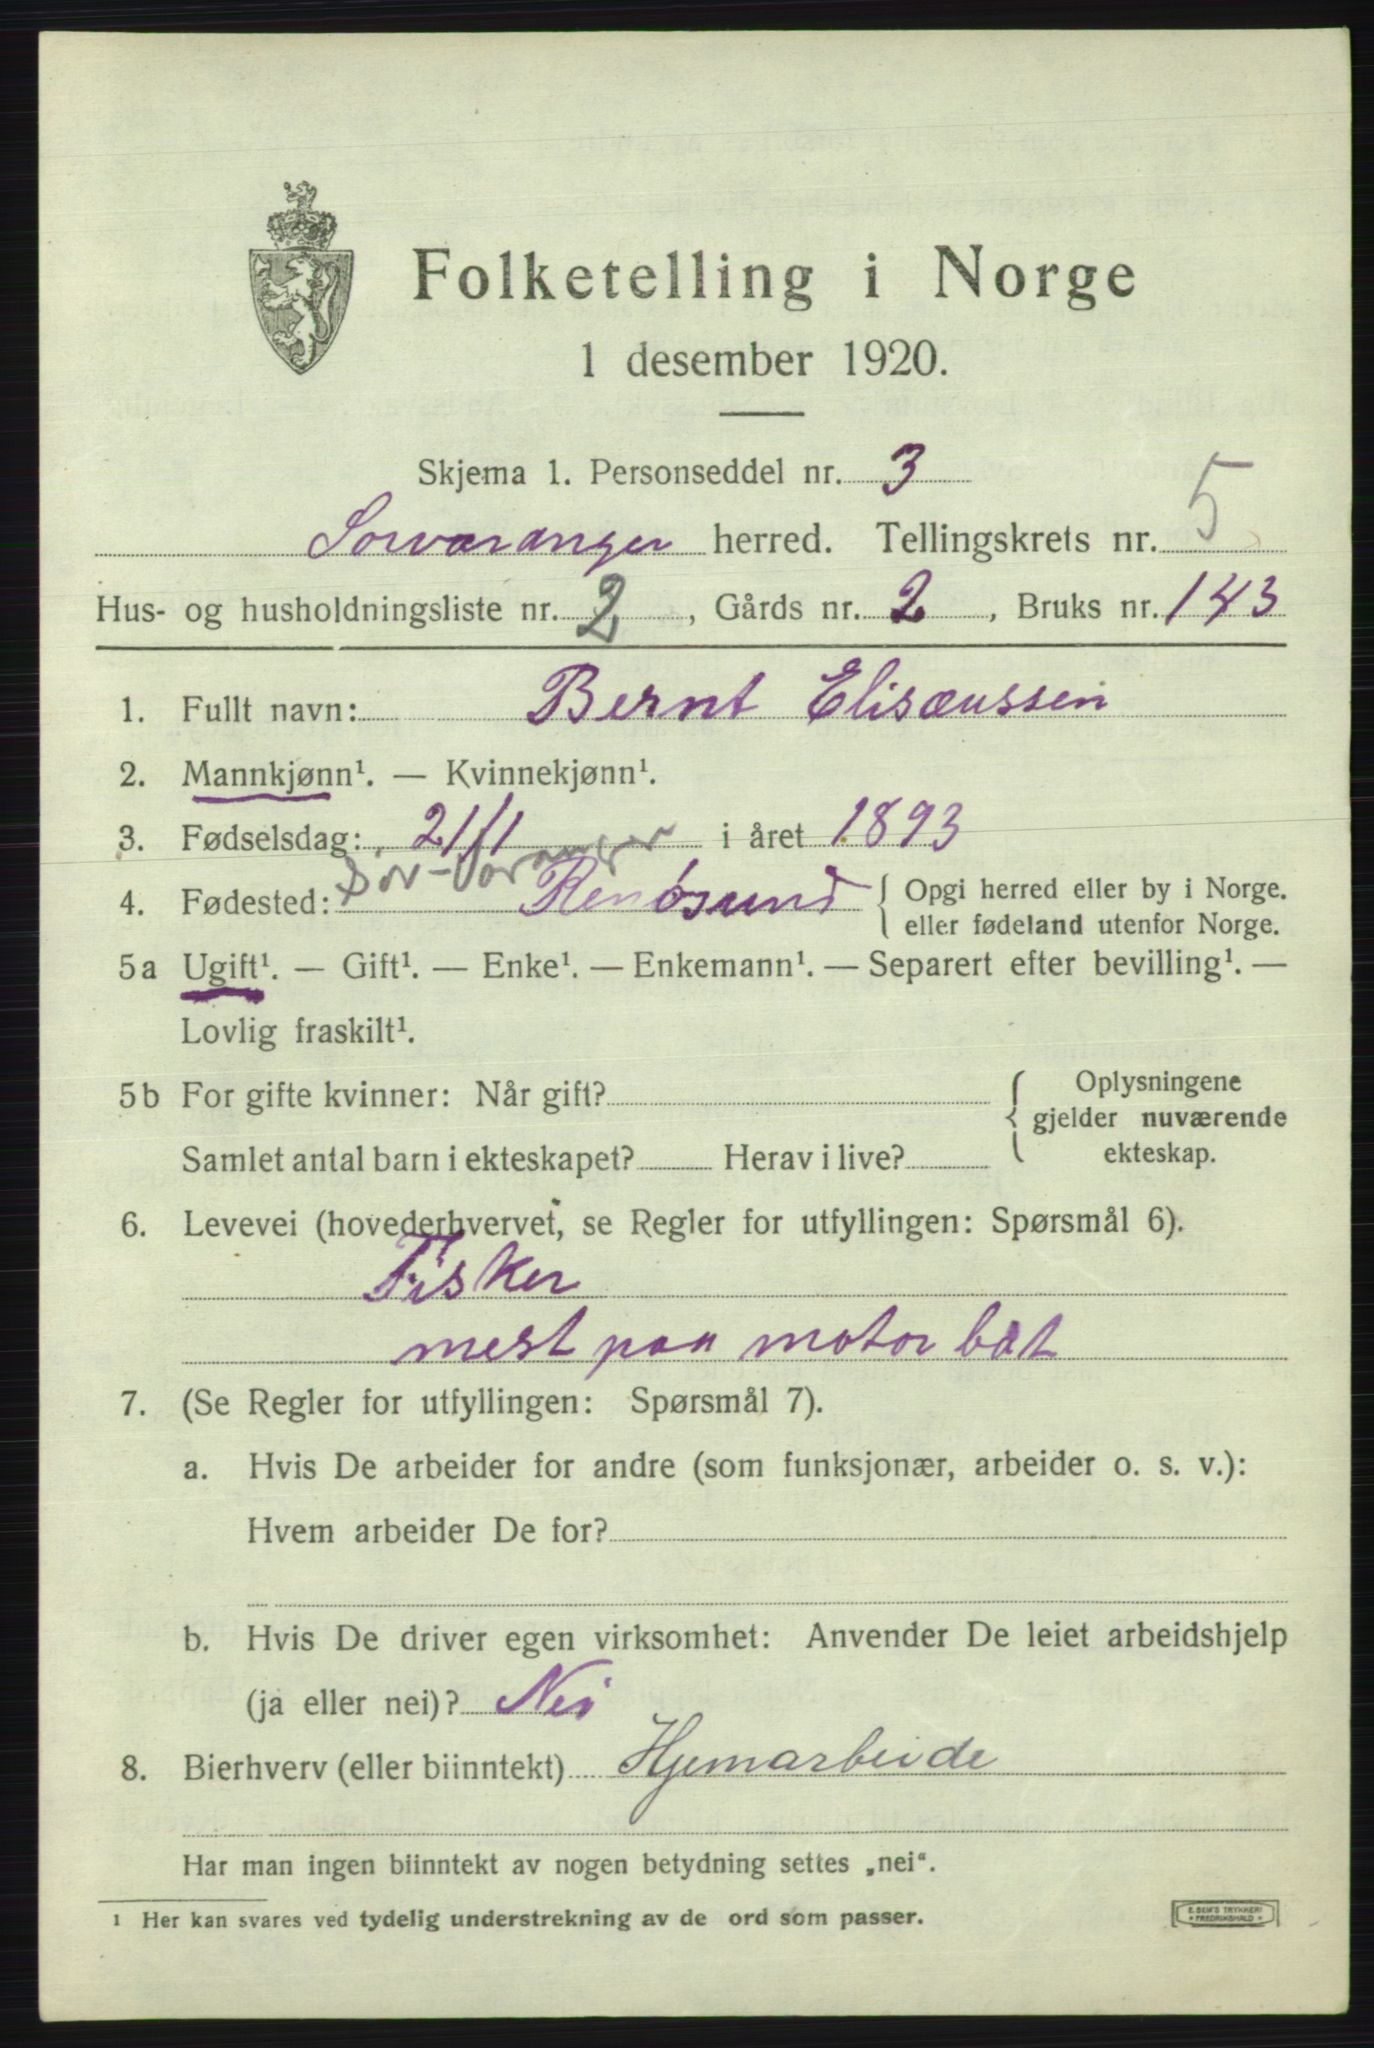 Folketelling i Norge
1 desember 1920.
Skjema 1. Personseddel nr. 3
Sorvaranger herred. Tellingskrets nr. 5
Hus- og husholdningsliste nr. 2, Gårds nr. 2, Bruks nr. 143
1. Fullt navn: Bernt Elisæussen
2. Mannkjønn¹. — Kvinnekjønn¹.
3. Fødselsdag: 21/1 i året 1893
Sør-Varanger
4. Fødested: Renøsund { Opgi herred eller by i Norge.
eller fødeland utenfor Norge.
5a Ugift¹. — Gift¹. — Enke¹. — Enkemann¹. — Separert efter bevilling¹. —
Lovlig fraskilt¹.
5b For gifte kvinner: Når gift? { Oplysningene
gjelder nuværende
Samlet antal barn i ekteskapet? Herav i live? ekteskap.
6. Levevei (hovederhvervet, se Regler for utfyllingen: Spørsmål 6).
Fisker
mest paa motor båt
7. (Se Regler for utfyllingen: Spørsmål 7).
a. Hvis De arbeider for andre (som funksjonær, arbeider o. s. v.):
Hvem arbeider De for?
b. Hvis De driver egen virksomhet: Anvender De leiet arbeidshjelp
(ja eller nei)? Nei
8. Bierhverv (eller biinntekt) Hjemarbeide
Har man ingen biinntekt av nogen betydning settes „nei“.
1 Her kan svares ved tydelig understrekning av de ord som passer.
E. SEM'S TRYKKERI
• FREDRIKSHALD •